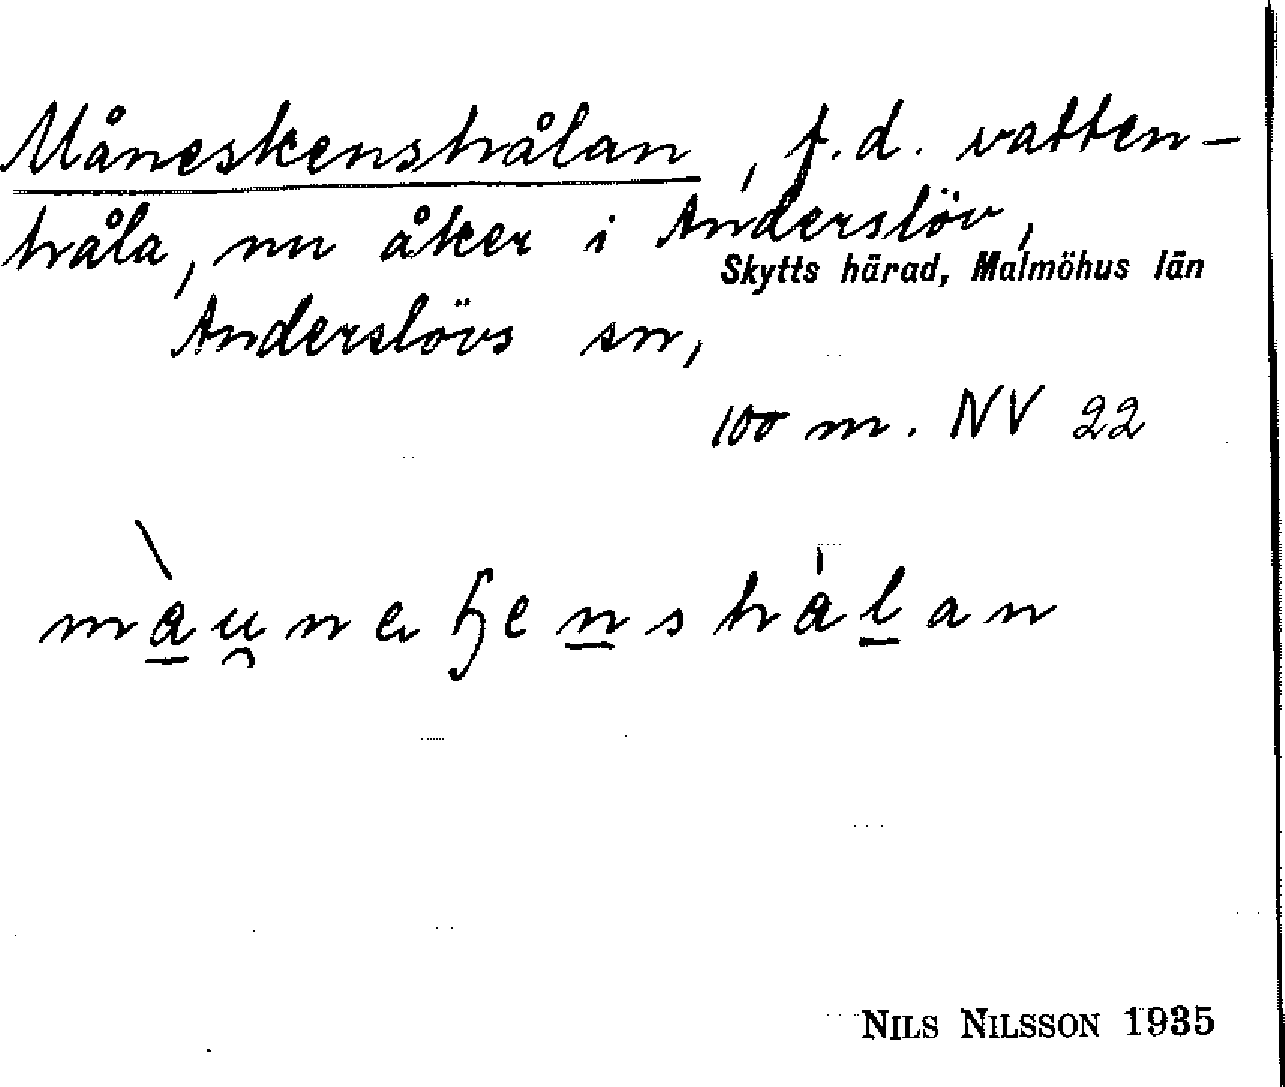 Måneskenshålan, f.d. vatten-
håla, nu åker i Anderslöv,
Skytts härad, Malmöhus län
Anderslövs sn,
100 m. NV 22
NILS NILSSON 1935